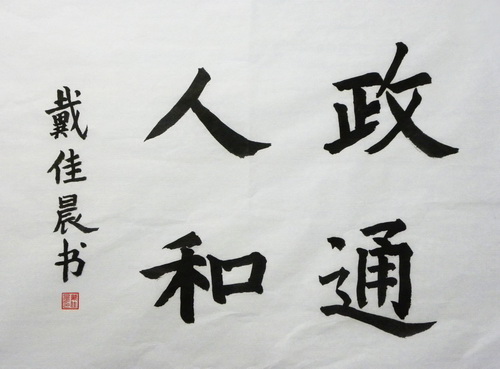 政通
人和
戴佳晨书